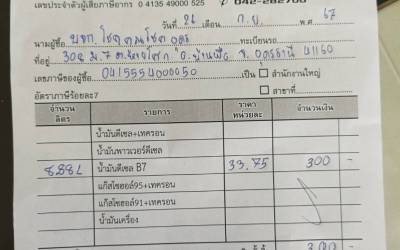 เลขประจำตัวผู้เสียภาษีอากร 0 4135 49000 525 042-282700
วันที่ 26 เดือน ก.ย. พ.ศ. 67
นามผู้ซื้อ บจก. โชค อุดร ทะเบียนรถ
ที่อยู่ 308 ม.7 อ.บ้านผือ จ. อุดรธานี 41160
เลขภาษีของผู้ซื้อ 0415554000050 เป็น ☐ สำนักงานใหญ่
อัตราภาษีร้อยละ 7 ☐ สาขาที่
จำนวน ลิตร รายการ ราคา หน่วยละ จำนวนเงิน
น้ำมันดีเซล+เทครอน
น้ำมันพาวเวอร์ดีเซล
8.88L น้ำมันดีเซล B7 33.75 300 -
แก๊สโซฮอล์95+เทครอน
แก๊สโซฮอล์91+เทครอน
น้ำมันเครื่อง
300 -